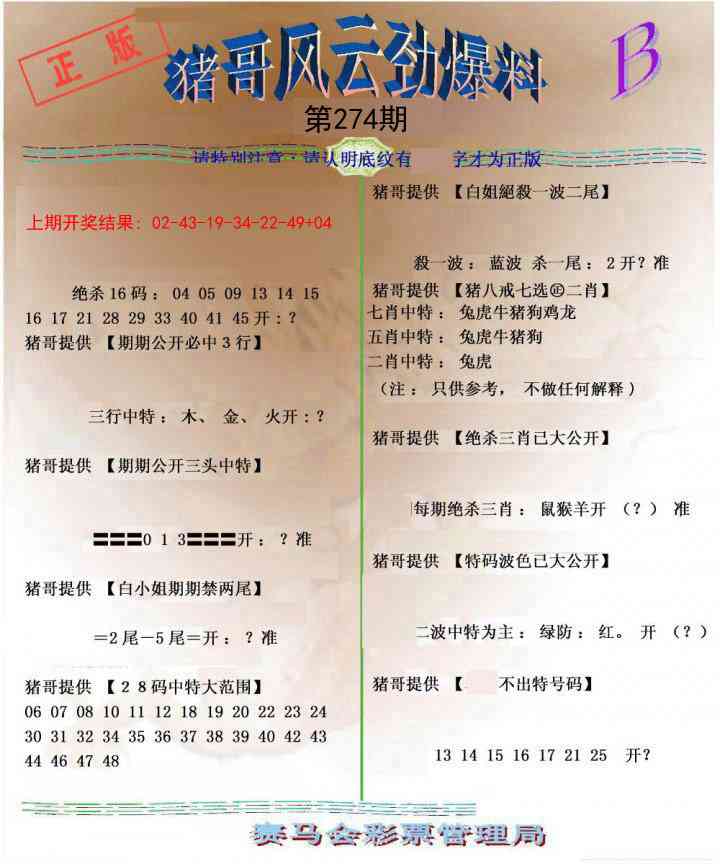 正版
猪哥风云劲爆料
B
第274期
请特别注意·请认明底纹有 字才为正版
上期开奖结果: 02-43-19-34-22-49+04
绝杀16码: 04 05 09 13 14 15
16 17 21 28 29 33 40 41 45开:?
猪哥提供 【期期公开必中3行】
三行中特: 木、 金、 火开:?
猪哥提供 【期期公开三头中特】
〓〓〓0 1 3〓〓〓开: ?准
猪哥提供 【白小姐期期禁两尾】
=2尾-5尾=开: ?准
猪哥提供 【28码中特大范围】
06 07 08 10 11 12 18 19 20 22 23 24
30 31 32 34 35 36 37 38 39 40 42 43
44 46 47 48
猪哥提供 【白姐絕殺一波二尾】
殺一波: 蓝波 杀一尾: 2开?准
猪哥提供 【猪八戒七选㊣二肖】
七肖中特: 兔虎牛猪狗鸡龙
五肖中特: 兔虎牛猪狗
二肖中特: 兔虎
(注: 只供参考, 不做任何解释)
猪哥提供 【绝杀三肖已大公开】
每期绝杀三肖: 鼠猴羊开 (?) 准
猪哥提供 【特码波色已大公开】
二波中特为主: 绿防: 红。 开 (?)
猪哥提供 【 不出特号码】
13 14 15 16 17 21 25 开?
赛马会彩票管理局